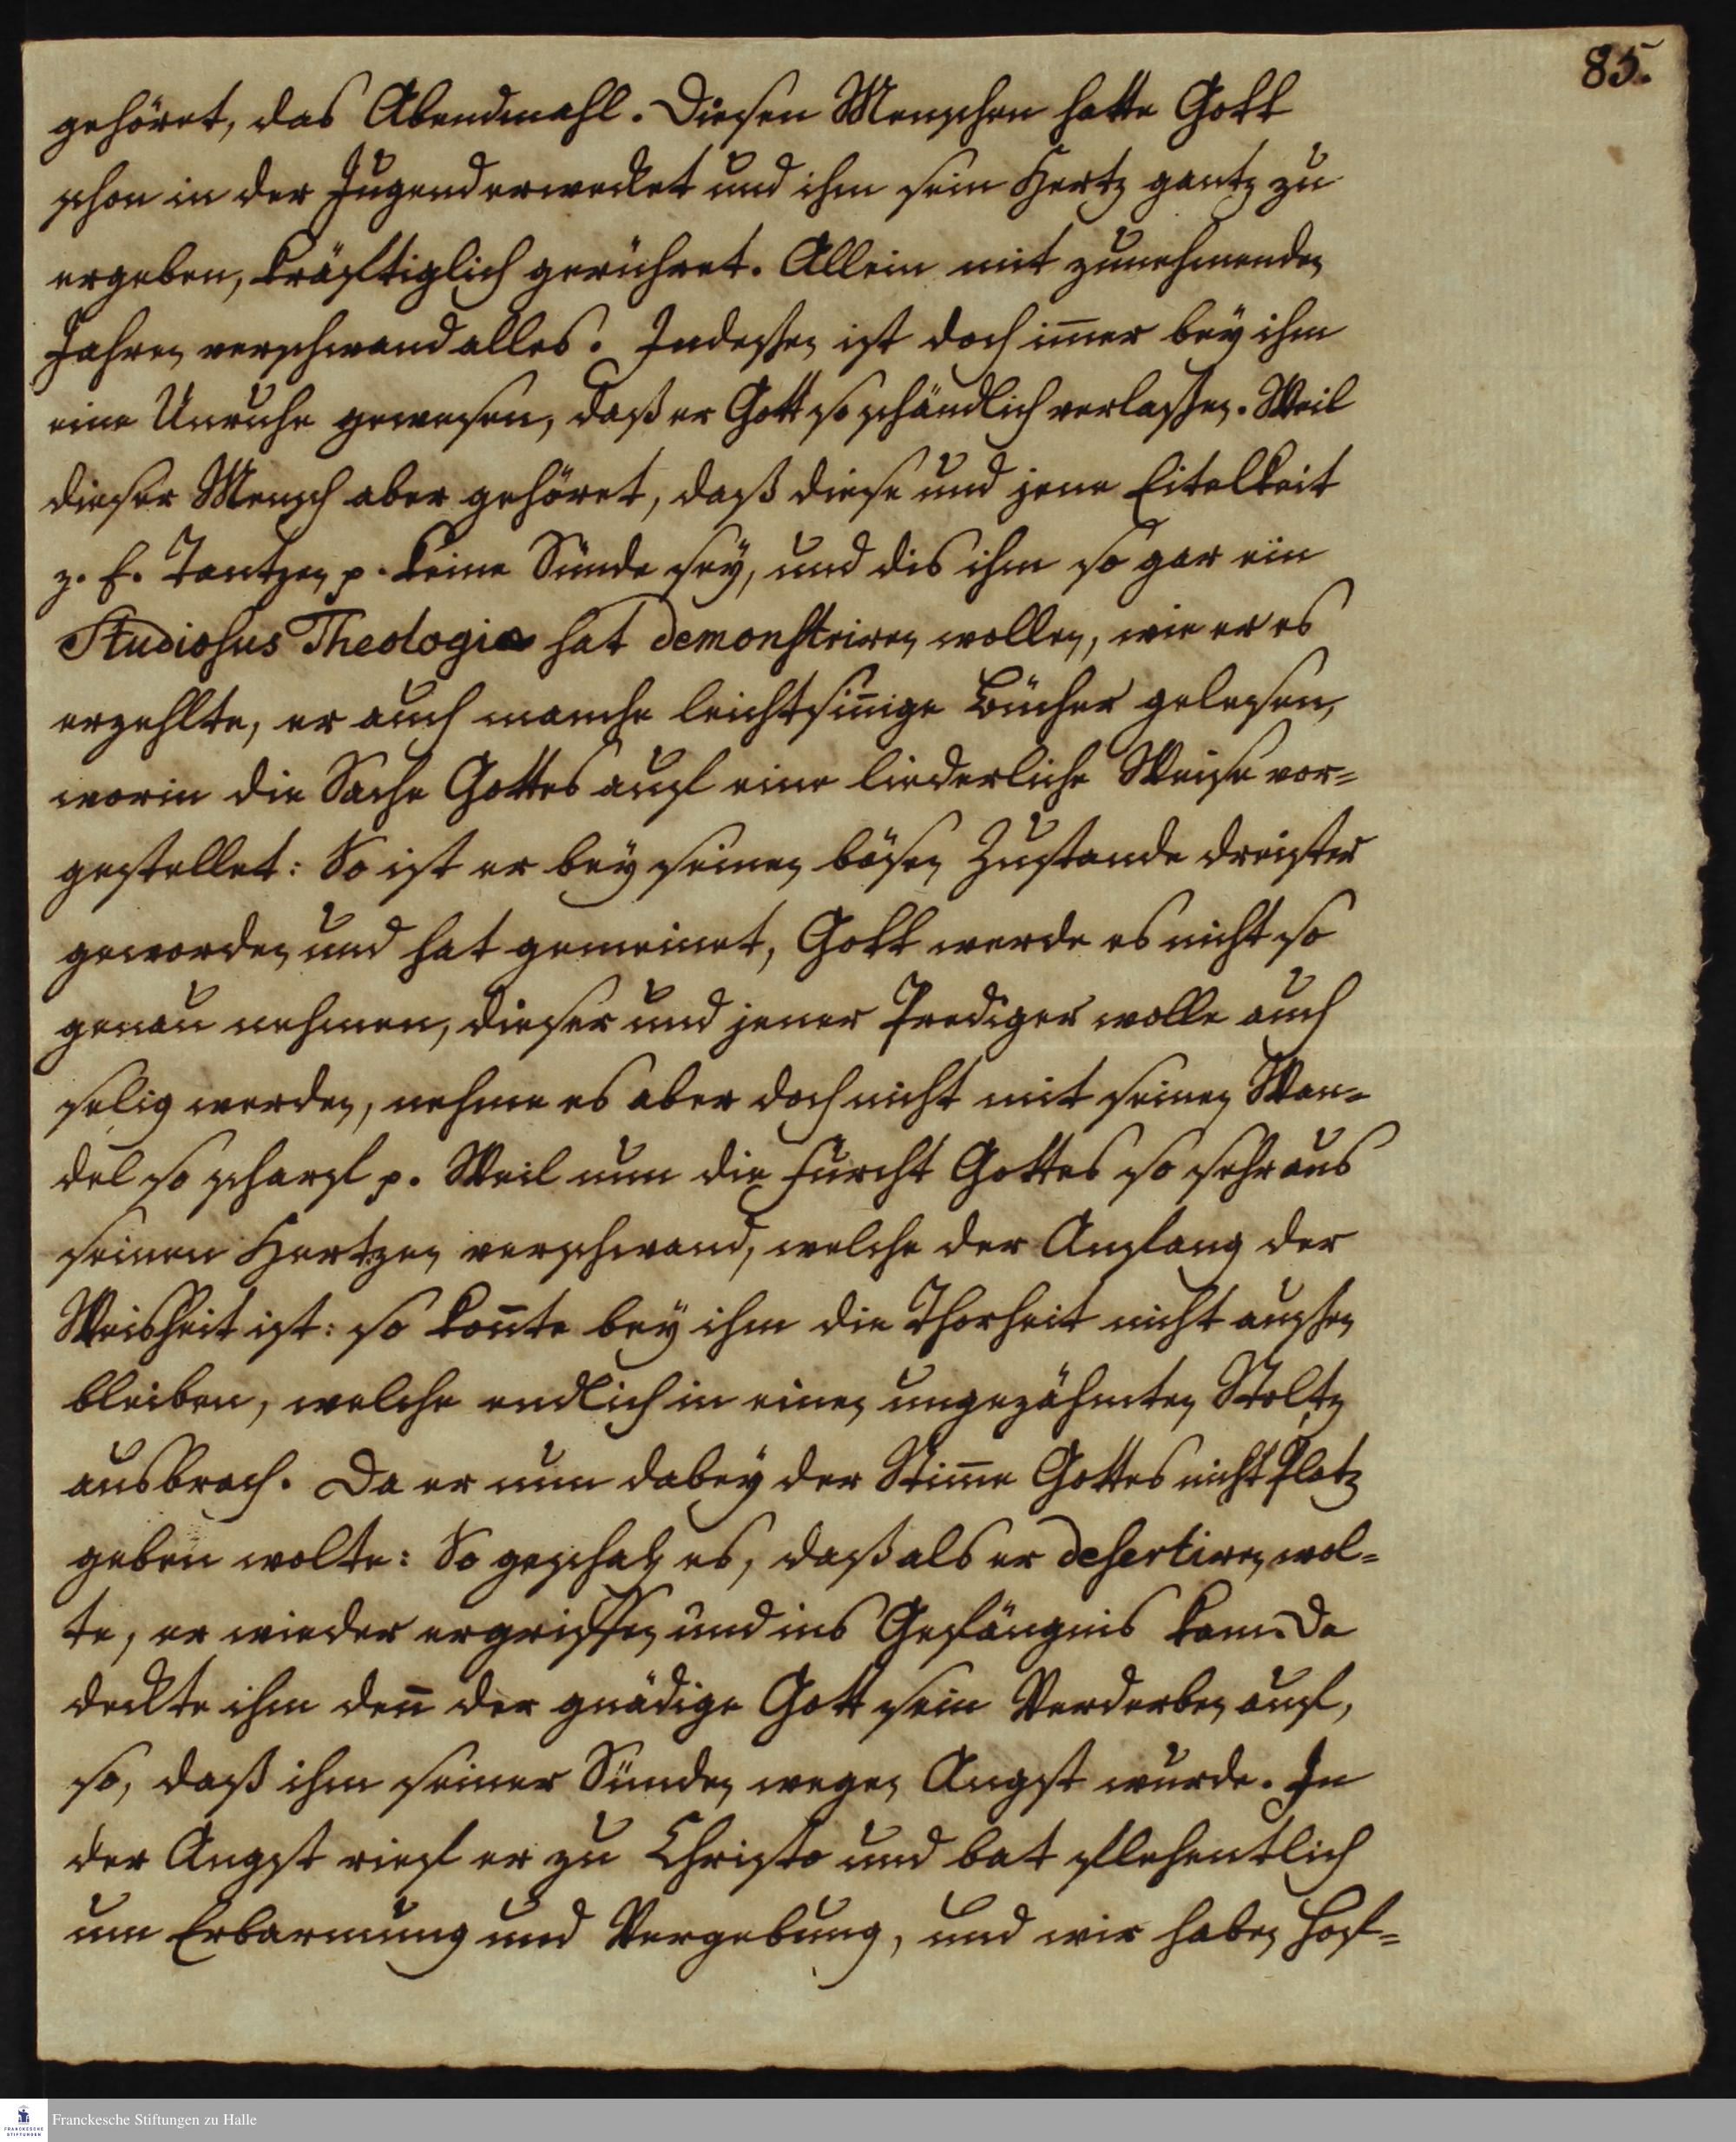 85.
gehöret, das Abendmahl. Diesen Menschen hatte Gott
schon in der Jugend erwecket und ihm sein Hertz gantz zu
ergeben, kräfftiglich gerühret. Allein mit zunehmenden
Jahren verschwand alles. Indeßen ist doch im̅er bey ihm
eine Unruhe gewesen, daß er Gott so schändlich verlaßen. Weil
dieser Mensch aber gehöret, daß diese und jene Eitelkeit
z. E. Tantzen p. keine Sünde sey, und dis ihm so gar ein
Studiosus Theologiæ hat demonstriren wollen, wie er es
erzehlte, er auch manche leichtsin̅ige Bücher gelesen,
worin die Sache Gottes auf eine liederliche Weise vor=
gestellet: So ist er bey seinen bösen Zustande dreister
geworden und hat gemeinet, Gott werde es nicht so
genau nehmen, dieser und jener Prediger wolle auch
selig werden, nehme es aber doch nicht mit seinen Wan=
del so scharf p. Weil nun die Furcht Gottes so sehr aus
seinen Hertzen verschwand, welche der Anfang der
Weisheit ist: so kon̅te bey ihm die Thorheit nicht außen
bleiben, welche endlich in einen ungezähmten Stoltz
ausbrach. Da er nun dabey der Stim̅e Gottes nicht Platz
geben wolte: So geschah es, daß als er desertiren wol=
te, er wieder ergriffen und ins Gefängnis kam. Da
deckte ihm den̅ der gnädige Gott sein Verderben auf,
so, daß ihm seiner Sünden wegen Angst wurde. In
der Angst rief er zu Christo und bat flehentlich
um Erbarmung und Vergebung, und wir haben Hof=
Franckesche Stiftungen zu Halle
FRANCKESCHE
STIFTUNGEN